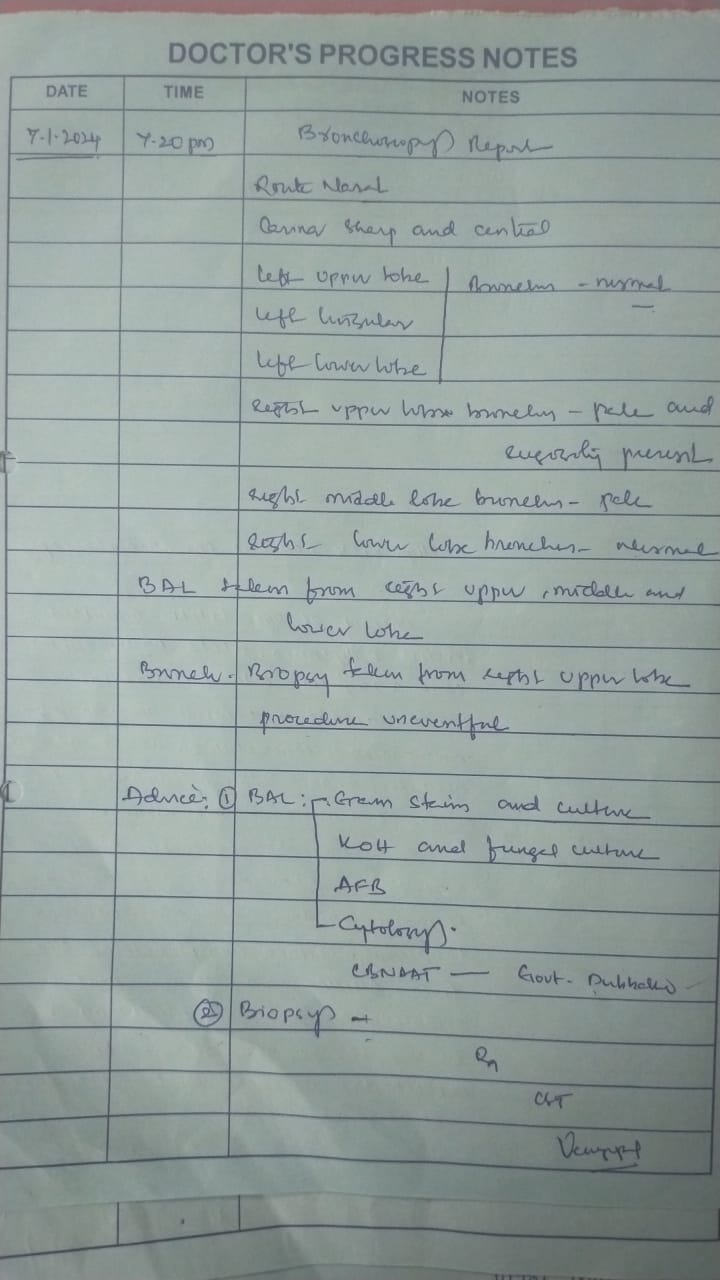 DOCTOR'S PROGRESS NOTES
DATE TIME NOTES
7-1-2024 7-20 pm Bronchoscopy Report
Route Nasal
Carina Sharp and central
Left upper lobe Bronchus - normal
Left lingular
Left lower lobe
Right upper lobe bronchus - pale and
rugosity present
Right middle lobe bronchus - pale
Right lower lobe bronchus - normal
BAL taken from right upper, middle and
lower lobe
Bronch. Biopsy taken from right upper lobe
procedure uneventful
Advice: ① BAL: Gram stain and culture
KOH and fungal culture
AFB
Cytology.
CBNAAT — Govt.
② Biopsy -
CST